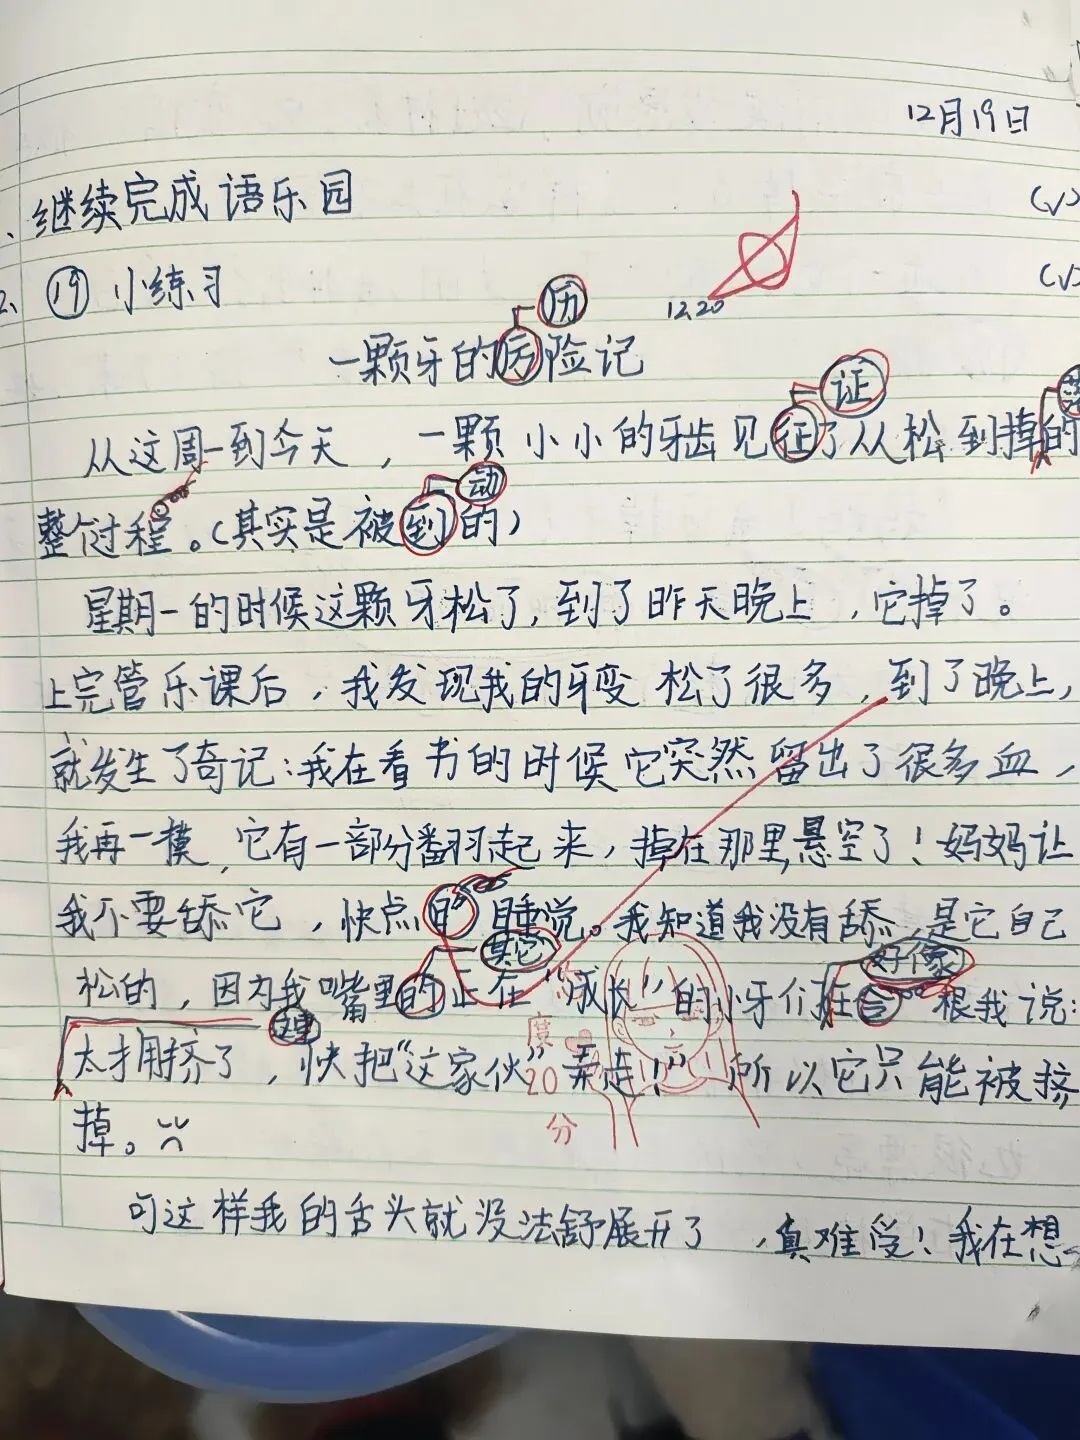 12月19日
、继续完成语乐园 (√)
2、⑲小练习 (√)
12.20
历
一颗牙的厉险记
证
从这周一到今天，一颗小小的牙齿见征了从松到掉的
动
整个过程。（其实是被到的）
星期一的时候这颗牙松了，到了昨天晚上，它掉了。
上完管乐课后，我发现我的牙变松了很多，到了晚上，
就发生了奇记：我在看书的时候它突然留出了很多血，
我再一摸，它有一部分翻起来，掉在那里悬空了！妈妈让
我不要舔它，快点睡觉。我知道我没有舔，是它自己
其它 好像
松的，因为我嘴里的正在“成长”的小牙们在会根我说：
这里
太拥挤了，快把“这家伙”弄走！”所以它只能被挤
度
20
分
掉。
可这样我的舌头就没法舒展开了，真难受！我在想